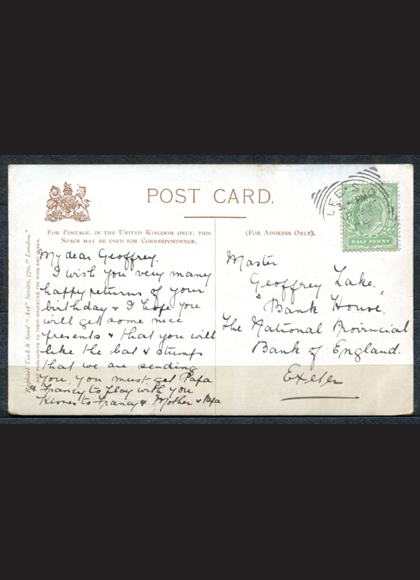 POST CARD.
FOR POSTAGE, IN THE UNITED KINGDOM ONLY, THIS
SPACE MAY BE USED FOR CORRESPONDENCE.
(FOR ADDRESS ONLY).
My dear Geoffrey.
I wish you very many
happy returns of your
birthday & I hope you
will get some nice
presents & that you will
like the bat & stumps
that we are sending
you. you must get Papa
& Francy to play with you
Kisses to Francy & Mother & Papa
Master
Geoffrey Lake.
"Bank House.
The National Provincial
Bank of England.
Exeter
Raphael Tuck & Sons' "Art" Series, "London."
FINE ART PUBLISHERS TO THEIR MAJESTIES THE KING AND QUEEN.
HALF PENNY
LEE
S.O
PM